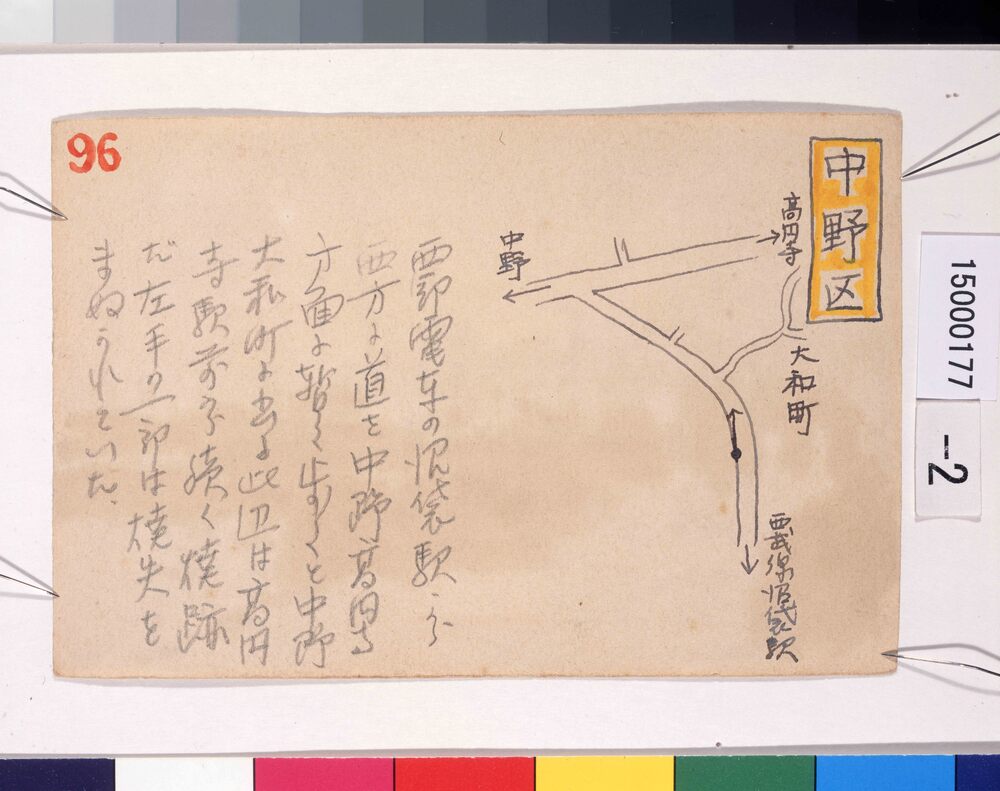 96
中野区
高円寺
中野
大和町
西武線沼袋駅
西部電車の沼袋駅から
西方に道を中野高円寺
方面に暫く歩むと中野
大和町に出る此辺は高円
寺駅前から続く焼跡
だ左手の一部は焼失を
まぬかれていた、
15000177
-2